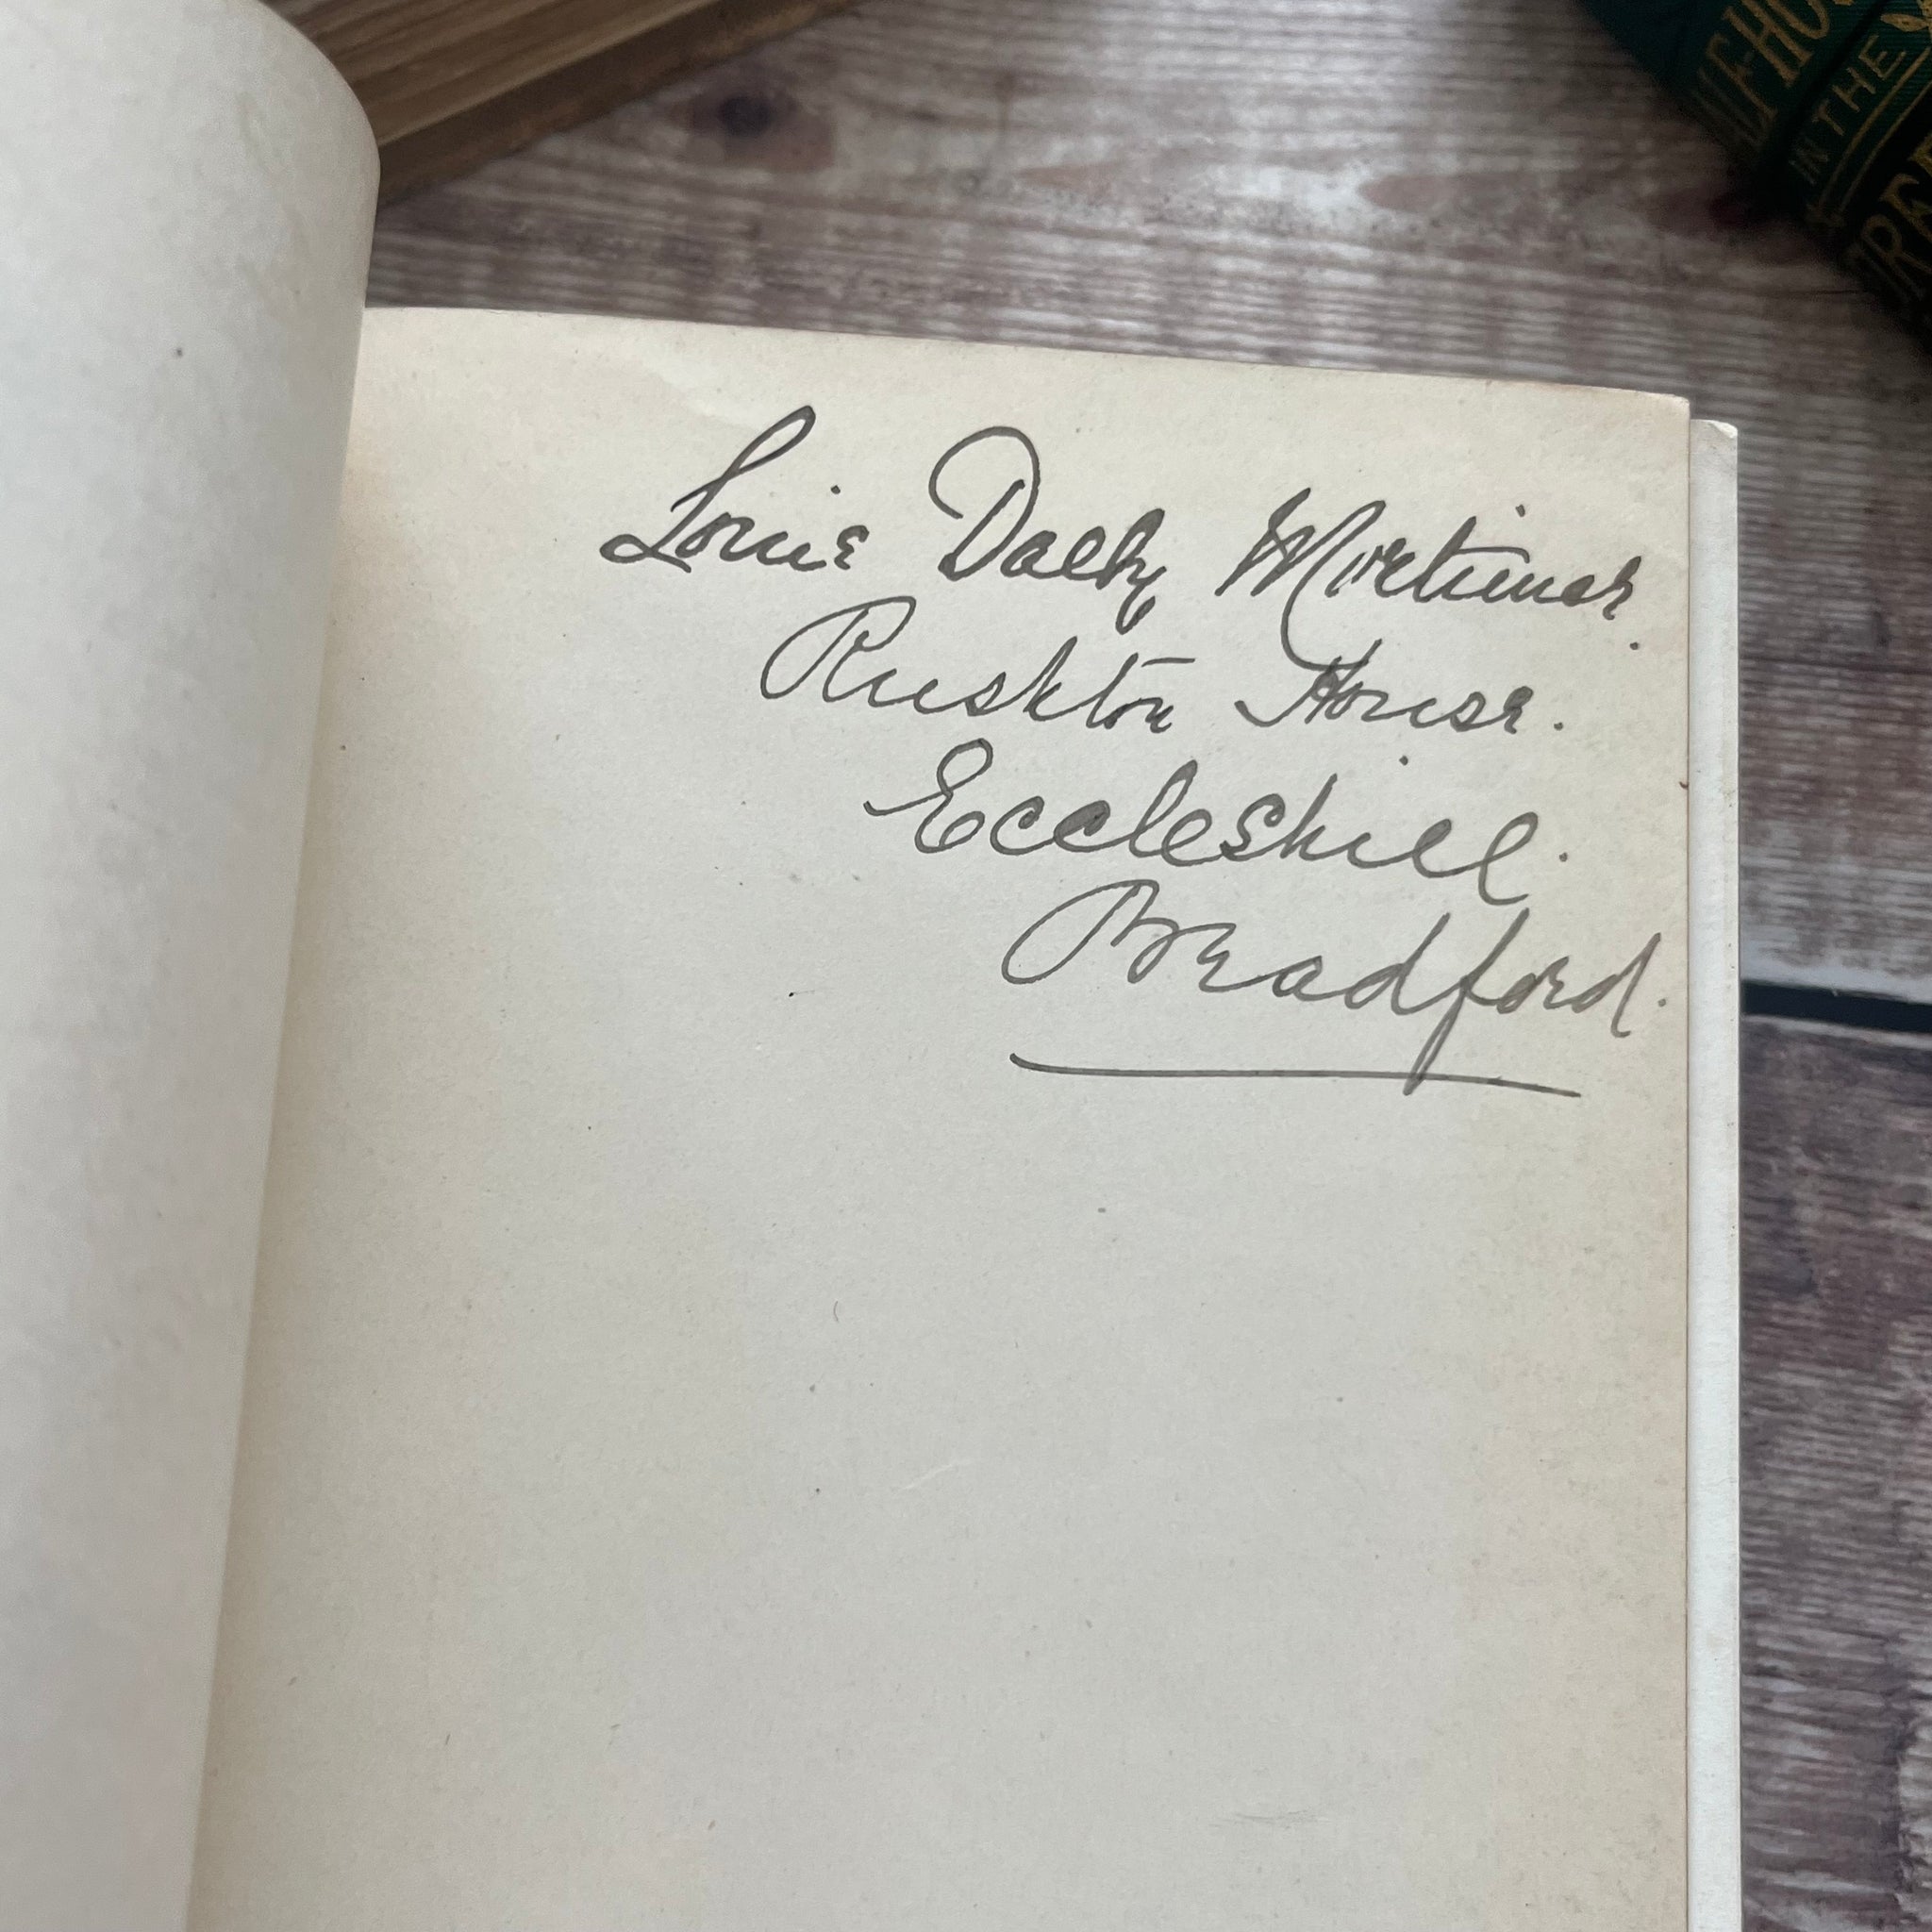 Louie Dalby Mortimer.
Rushton House.
Eccleshill.
Bradford.
IN THE